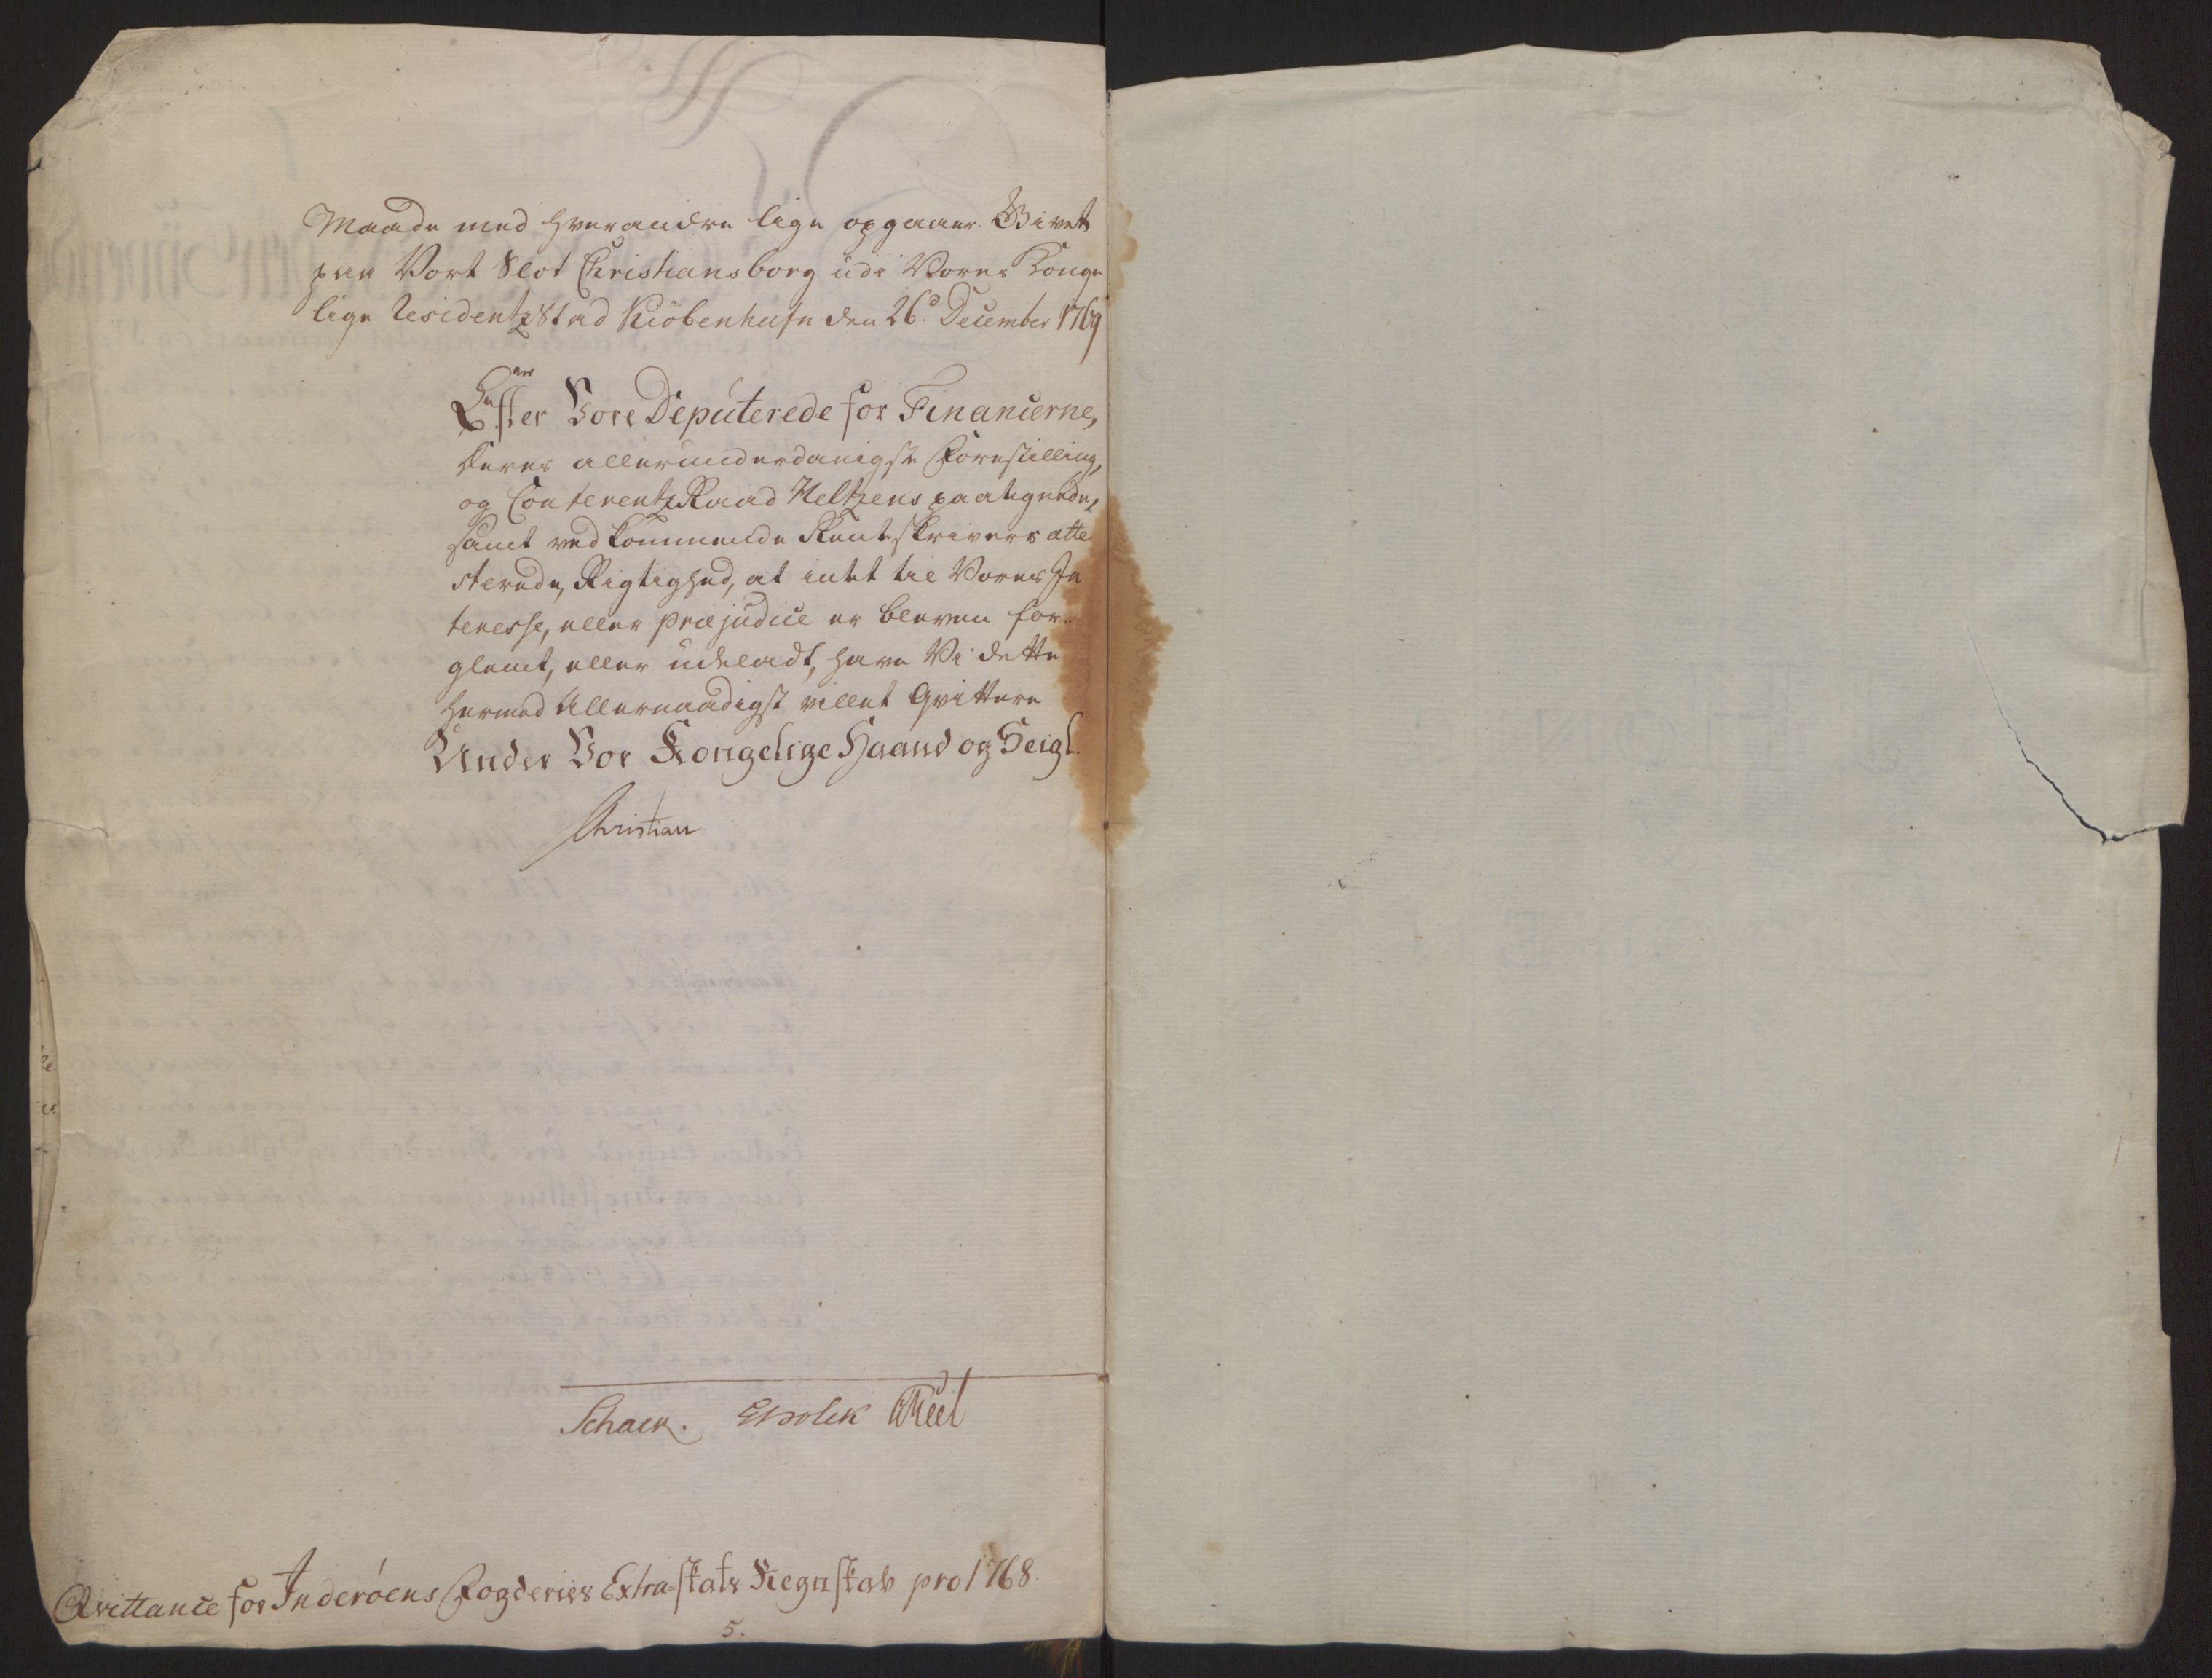 Maade med hverandre lige opgaaer. Givet
paa Vort Slot Christiansborg udi Vores Konge
lige Residentz Stad Kiöbenhafn den 26.d December 1769
Efter Vore Deputerede for Financerne,
deres allerunderdanigste Forestilling,
og Conferentz Raad Heltzens paategnede,
samt vedkommende Renteskrivers atte
sterede, Rigtighed, at intet til Vores In
teresse, eller præjudice er bleven for¬
glemt, eller udeladt, have Vi dette
hermed Allernaadigst villet Qvittere
Under Vor Kongelige Haand og Seigl.
Christian
Schack.
Qvittance for Inderöens Fogderies Extra=skats Regnskab pro 1768.
5.